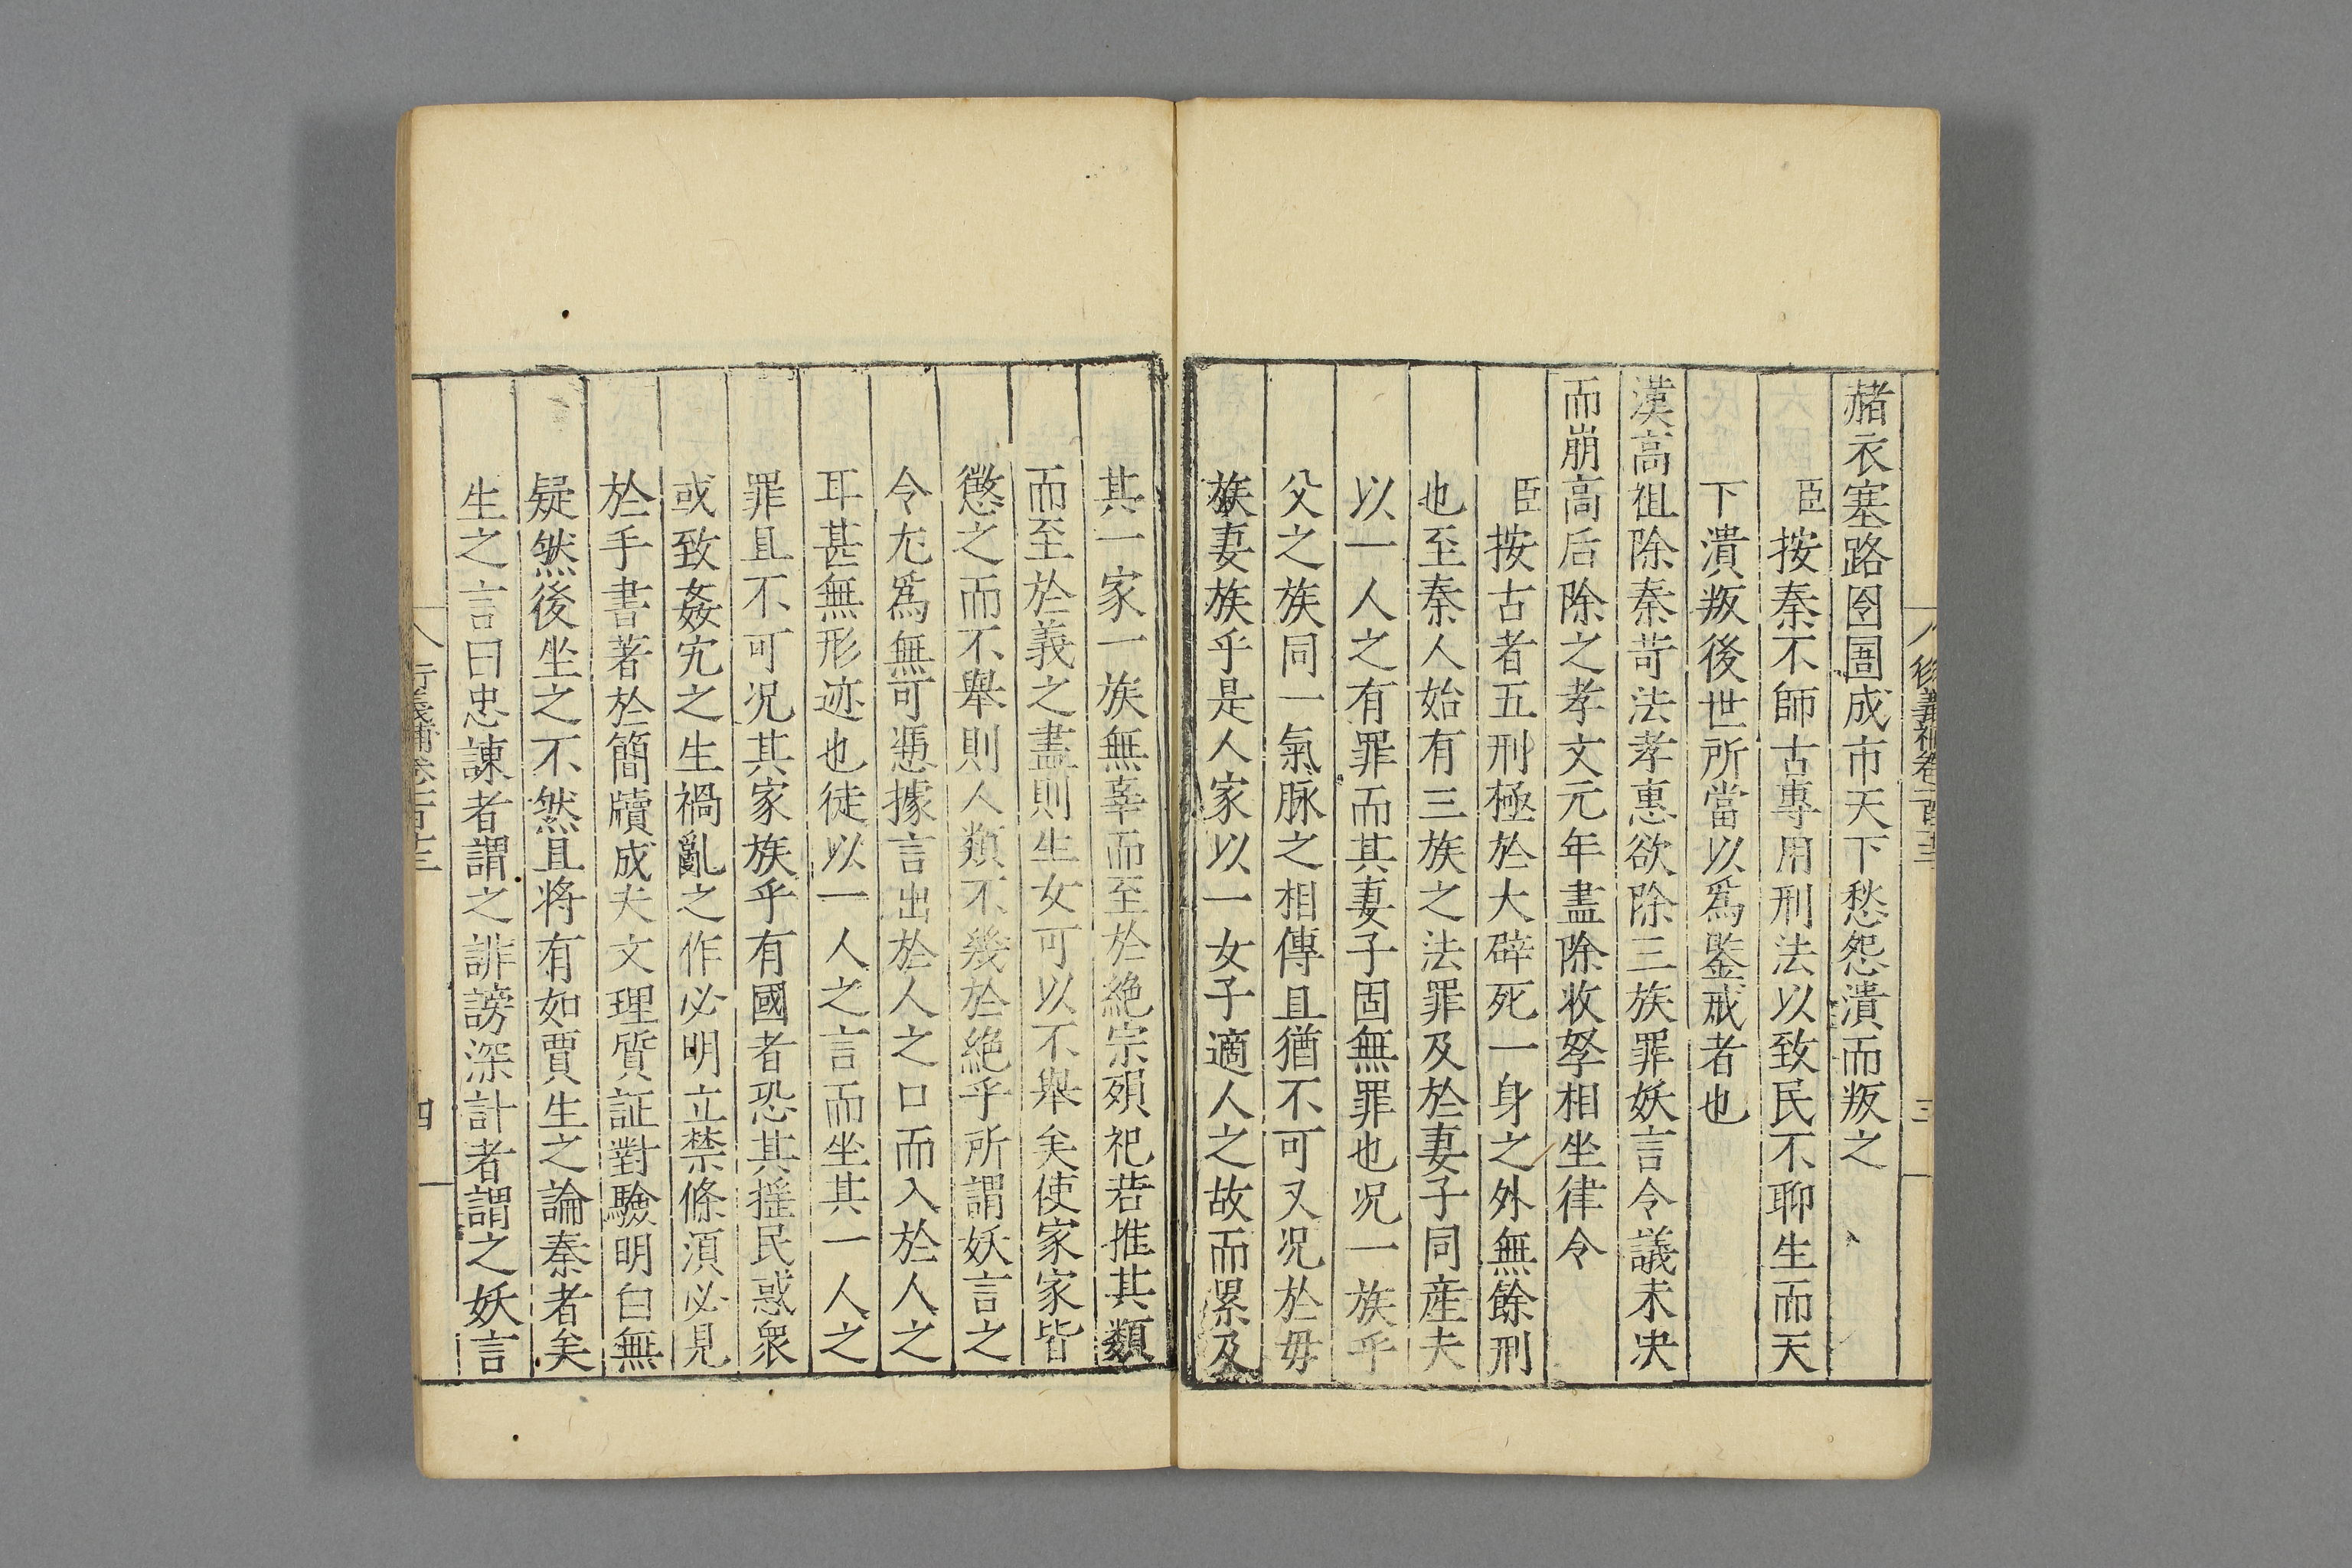 赭衣塞路囹圄成市天下愁怨潰而叛之
臣按秦不師古專用刑法以致民不聊生而天
下潰叛後世所當以爲鑒戒者也
漢高祖除秦苛法孝惠欲除三族罪妖言令議未决
而崩高后除之孝文元年盡除收孥相坐律令
臣按古者五刑極於大辟死一身之外無餘刑
也至秦人始有三族之法罪及於妻子同産夫
以一人之有罪而其妻子固無罪也况一族乎
父之族同一氣脉之相傳且猶不可又况於毋
族妻族乎是人家以一女子適人之故而累及
其一家一族無辜而至於絶宗殞祀若推其類
而至於義之盡則生女可以不舉矣使家家皆
懲之而不舉則人類不幾於絶乎所謂妖言之
令尤爲無可慿據言出於人之口而入於人之
耳甚無形迹也徒以一人之言而坐其一人之
罪且不可况其家族乎有國者恐其揺民惑衆
或致姦宄之生禍亂之作必明立禁條須必見
於手書著於簡牘成夫文理質証對驗明白無
疑然後坐之不然且将有如賈生之論秦者矣
生之言曰忠諫者謂之誹謗深計者謂之妖言
四